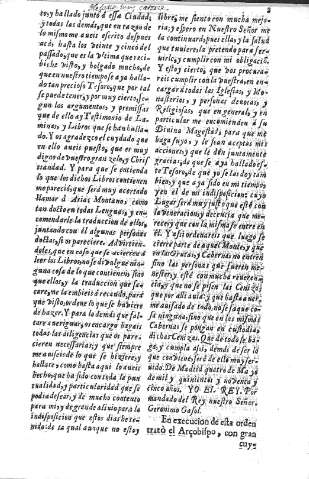 ro, y hallado junto á essa Ciudad,
y todas las demàs, que en razon de
lo mismo me aueis escrito despues
acà: hasta los veinte y cinco del
passado, que es la vltima que reci-
biche visto, y holgado mucho, de
que en nuestro tiempo se aya halla-
do tan precioso Tesoro, que por tal
se puede tener, y por muy cierto, se-
gun los argumentos, y premissas
que de ello ay Testimonio de La-
minas, y Libros que se han halla-
do. Y os agradezco el cuydado que
en ello aueis puesto, que es muy
digno de vuestro gran zelo, y Chris-
tiandad. Y para que se entienda
lo que los dichos Libros contienen
me pareciò, que será muy acertado
llamar à Arias Montano, como
tan docto en todas Lenguas, y en-
comendarle la traduccion de ellos,
juntando con èl algunas personas
doctas, si os pareciere. Advirtien-
doles, que en caso que se viniere à
leer los Libros, no se divulgue nin-
guna cosa de lo que contienen, sino
que ellos, y la traduccion que saca-
ren, me la embieis à recaudo, parà
que visto, ordene lo que se huviere
de hazer. Y para lo demàs que fal-
tare averiguar, os encargo hagais
todas las diligencias que os pare-
cieren necessarias; y que siempre
me auiseis de lo que se hiziere, y
hallare, como hasta aqui lo aueis
hecho, que ha sido con toda la pun-
tualidad, y particularidad que se
podia desear, y de mucho contento
para mi, y de grande alivio para la
indisposicion que estos dias he te-
nido: de la qual aunque no estoy
libre, me siento con mucha mejo-
ria; y espero en Nuestro Señor me
la continuarà, pues ella, y la salud
que tuuiere, la pretendo para ser-
uirle, y cumplir con mi obligaciõ.
Y estoy cierto, que vos procura-
reis cumplir con la vuestra, en en-
cargar à todas las Iglesias, y Mo-
nasterios, y personas devotas, y
Religiosas que en general, y en
particular me encomienden á su
Divina Magestad, para que me
haga suyo, y le sean aceptas mis
acciones, y que le dèn juntamente
gracias, de que se aya hallado es-
te Tesoro, de que yo se las doy tam
bien; y que aya sido en mi tiempo,
y en èl de mi indisposicion: cuyo
Lugar será muy justo que estè con
la veneracion, y decencia que me-
rece, y que con la misma se entre en
èl. Y assi ordenareis que luego se
cierre parte de aquel Monte, y que
en las Cabernas no entren
sino las personas que fueren me-
nester, y estè con mucha reveren-
cia, que no se pisen las Cenizas
que por alli aurà; y que hasta auer-
me auisado de todo, no se saque co-
sa ninguna, sino que en las mismas
Cabernas se pongan en custodia,
dichas Cenizas. Que de todo se ha-
ga, y cumpla assi, demàs de ser lo
que conviene, serè de ello muy ser-
uido. De Madrid quatro de Mayo
de mil, y quinientos, y noventa y
cinco años. YO EL REY. Por
mandado del Rey nuestro Señor.
Geronimo Gasol.
En execucion de esta orden
tratò el Arçobispo, con gran
cuy-